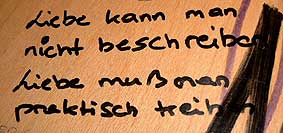 Liebe kann man
nicht beschreiben
Liebe muß man
praktisch treiben